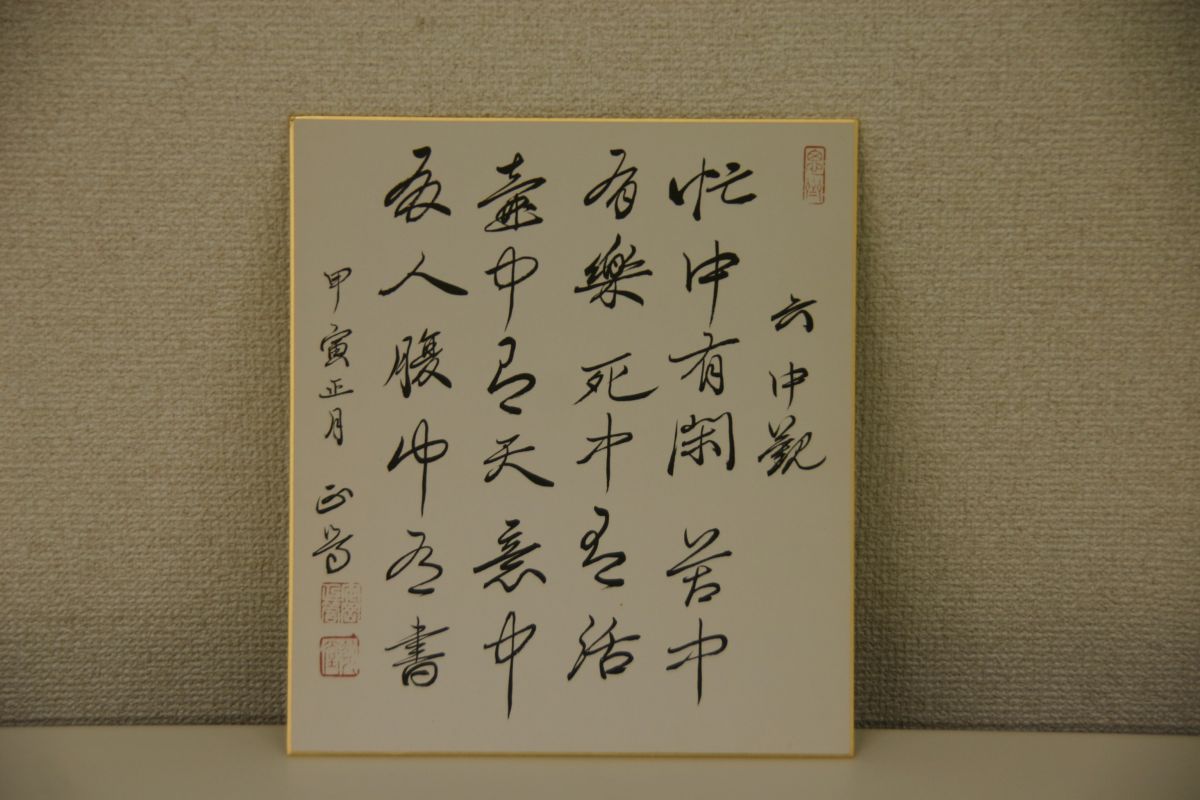 六中觀
忙中有閑 苦中
有樂 死中有活
壺中有天 意中
有人 腹中有書
甲寅正月 正篤